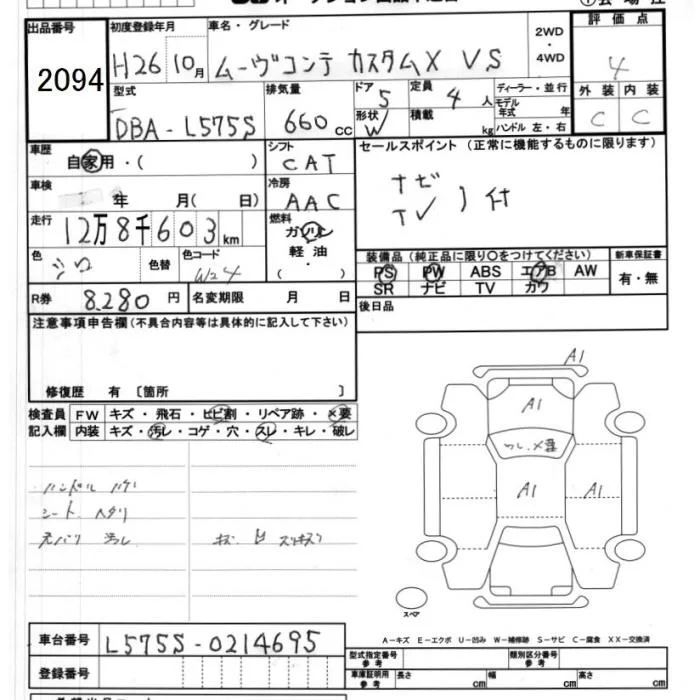 出品番号 初度登録年月 車名・グレード 2WD・4WD 評価点
2094 H26 10月 ムーヴコンテ カスタムX VS 4
型式 排気量 ドア 定員 ディーラー・並行 外装 内装
DBA-L575S 660cc 5 4人 モデル年式 年 C C
形状 W 積載 kg ハンドル 左・右
車歴 シフト セールスポイント (正常に機能するものに限ります)
自家用・( ) CAT
車検 冷房 ナビ
年 月( 日) AAC TV )付
走行 燃料
12万8千603km ガソリン
色 色替 色コード 軽油 装備品 (純正品に限り○をつけてください) 新車保証書
シロ W24 ・( ) PS PW ABS エアB AW 有・無
R券 8.280円 名変期限 月 日 SR ナビ TV カワ
後日品
注意事項申告欄(不具合内容等は具体的に記入して下さい)
修復歴 有 〔箇所 〕
検査員 FW キズ・飛石・ヒビ割・リペア跡・×要
記入欄 内装 キズ・汚レ・コゲ・穴・スレ・キレ・破レ
ハンドル ハゲ
シート ヘタリ
A1
A1
A1
A1
スペア
A-キズ E-エクボ U-凹み W-補修跡 S-サビ C-腐食 XX-交換済
車台番号 L575S-0214695
型式指定番号 参考 類別区分番号 参考
登録番号 車庫証明用 参考 長さ cm 幅 cm 高さ cm